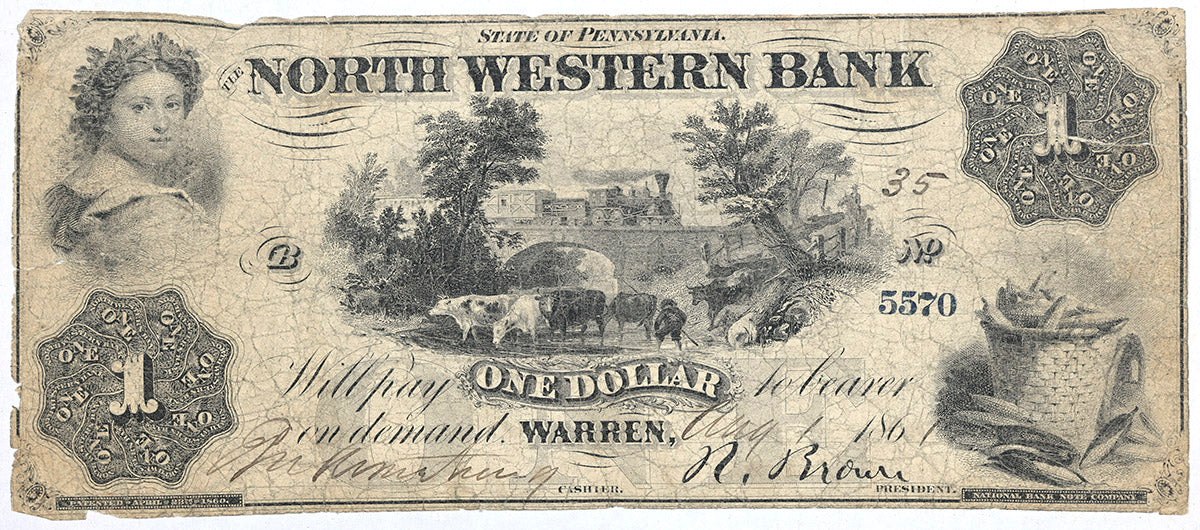 STATE OF PENNSYLVANIA.
THE NORTH WESTERN BANK
ONE ONE ONE ONE ONE ONE ONE ONE
1
35
B
No
5570
ONE ONE ONE ONE ONE ONE ONE ONE
1
Will pay ONE DOLLAR to bearer
on demand. WARREN, Aug 1 1861
Armstrong N. Brown
CASHIER. PRESIDENT.
PATENTED APRIL 23RD 1860. NATIONAL BANK NOTE COMPANY